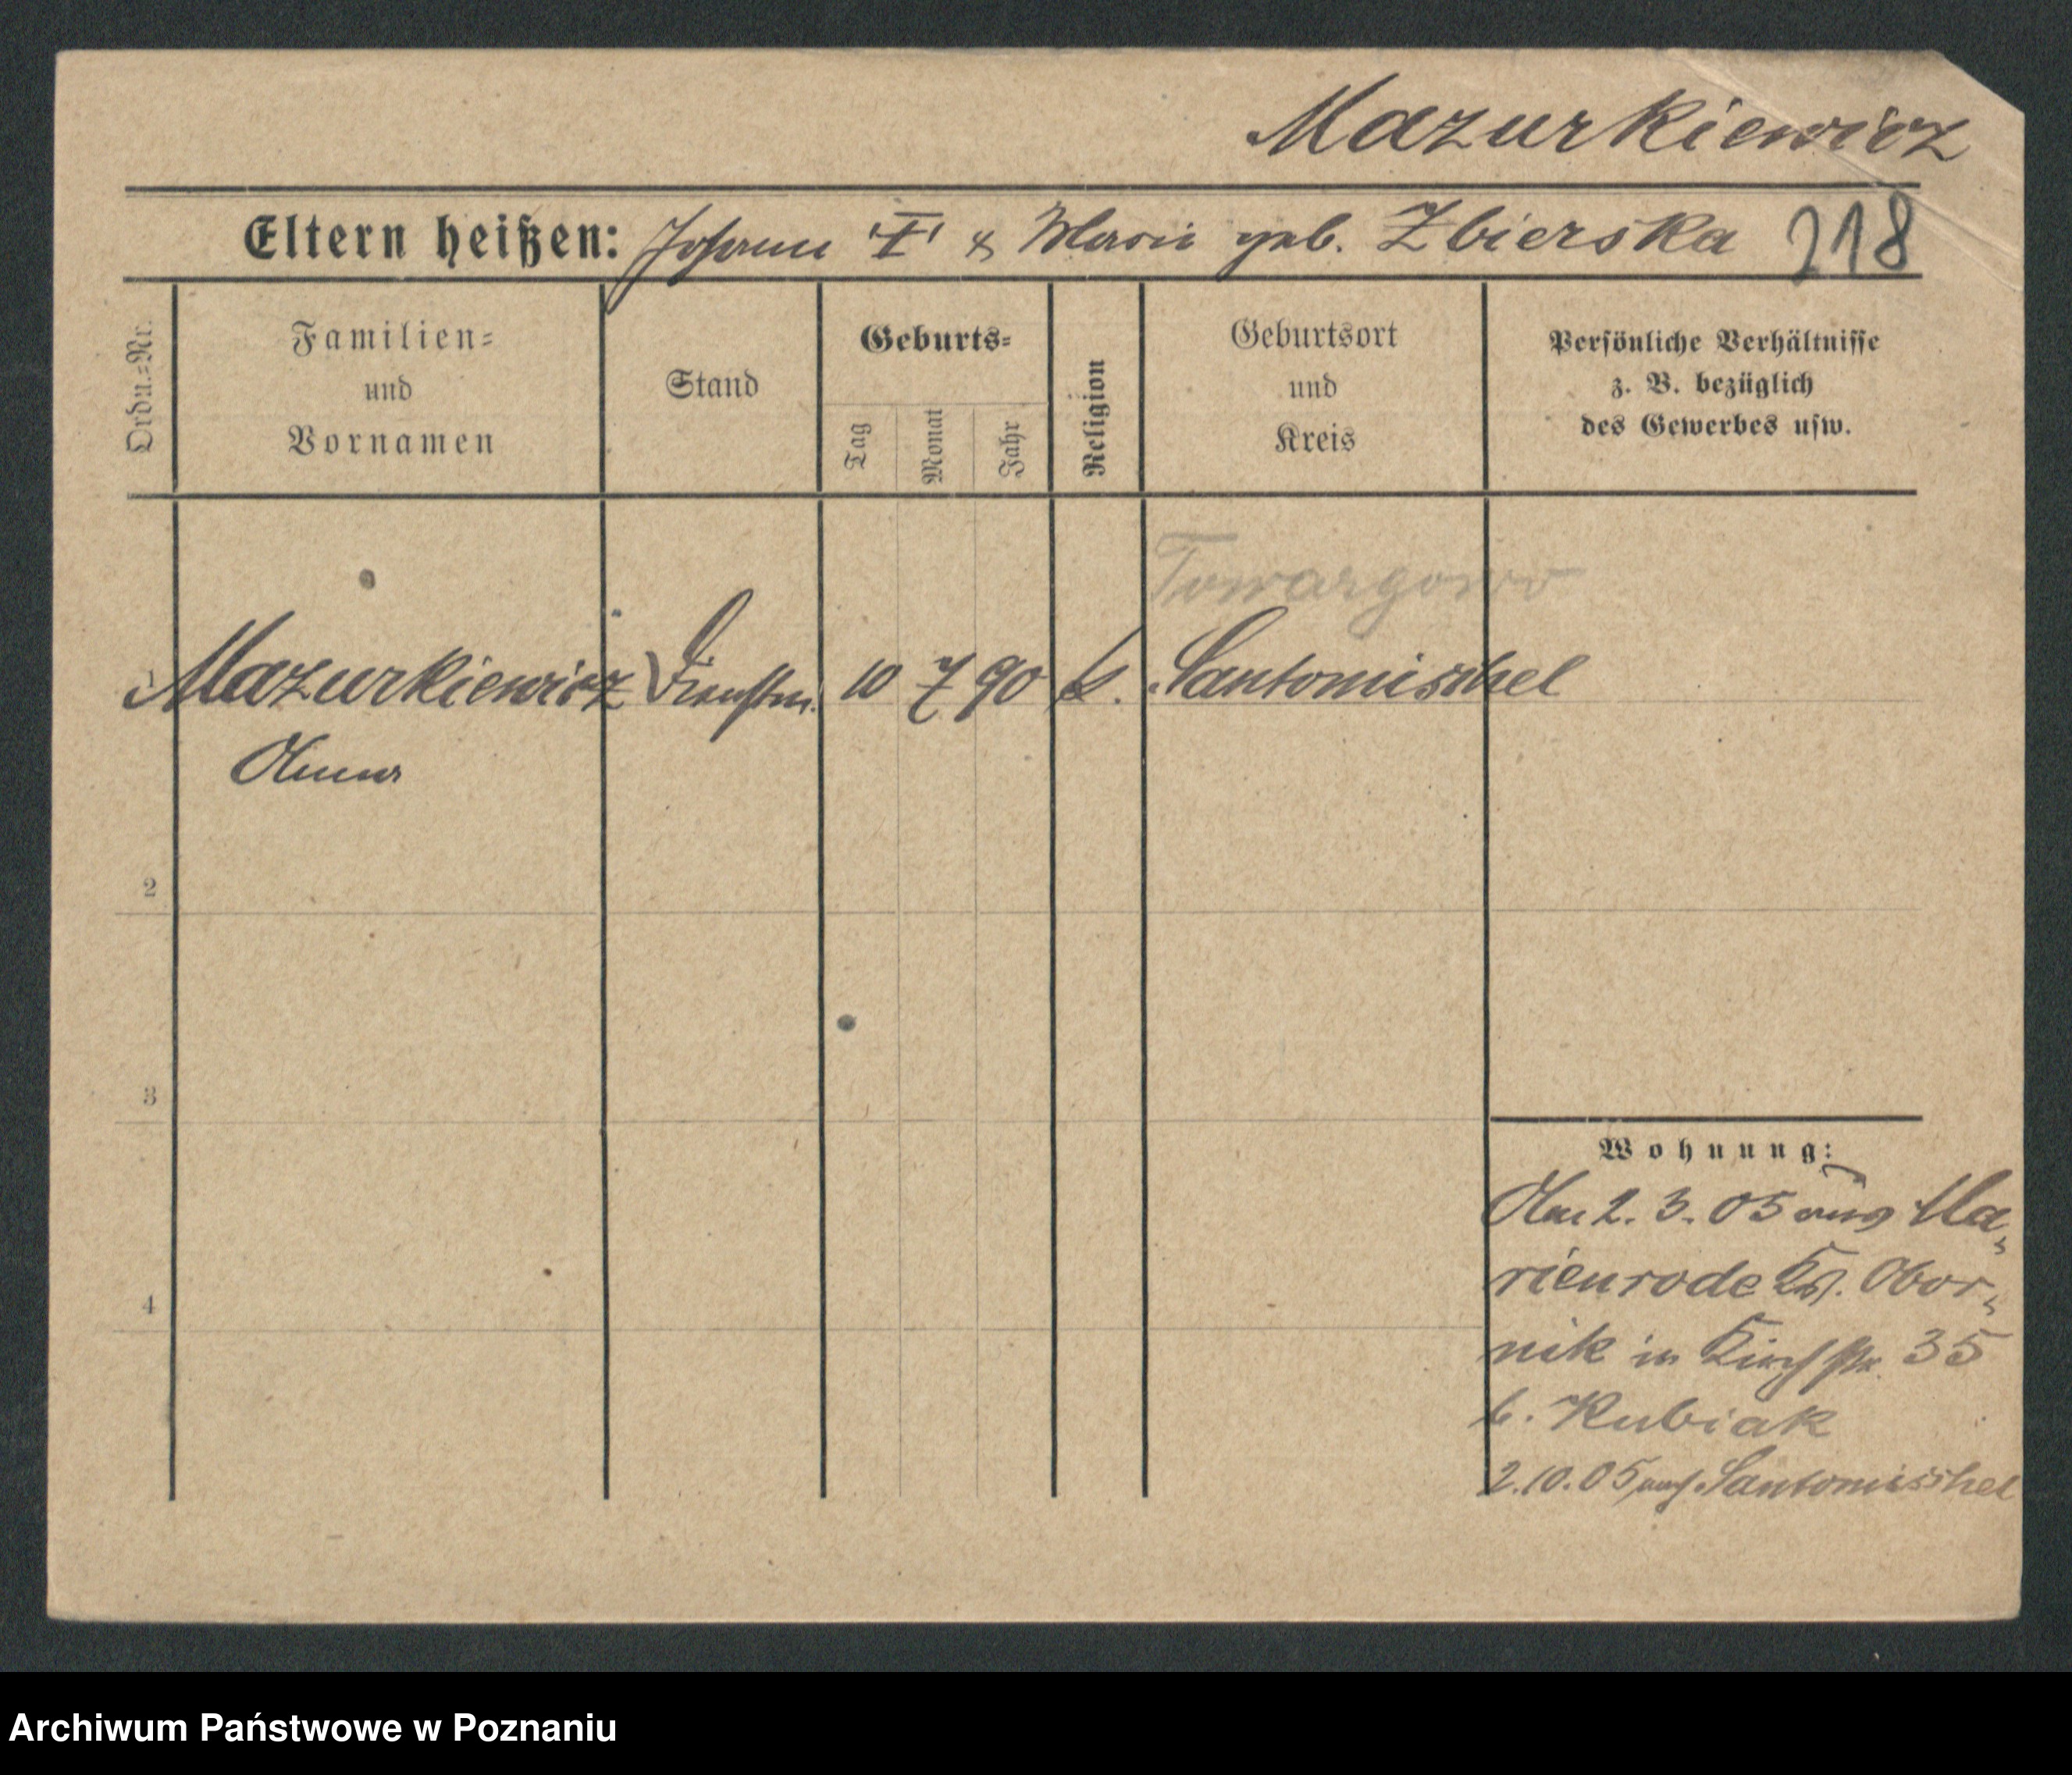 Mazurkiewicz
Eltern heißen: Johann I & Marie geb. Zbierska 218
Ordn.=Nr.
Familien=
und
Vornamen
Stand
Geburts=
Tag
Monat
Jahr
Religion
Geburtsort
und
Kreis
Persönliche Verhältnisse
z. B. bezüglich
des Gewerbes usw.
Towargowo
1 Mazurkiewicz Dienstm. 10 7 90 k. Santomischel
Anna
2
3
4
Wohnung:
Am 2. 3. 05 aus Ma-
rienrode Krs. Obor-
nik in Kirchstr. 35
b. Kubiak
2.10.05 nach Santomischel
Archiwum Państwowe w Poznaniu